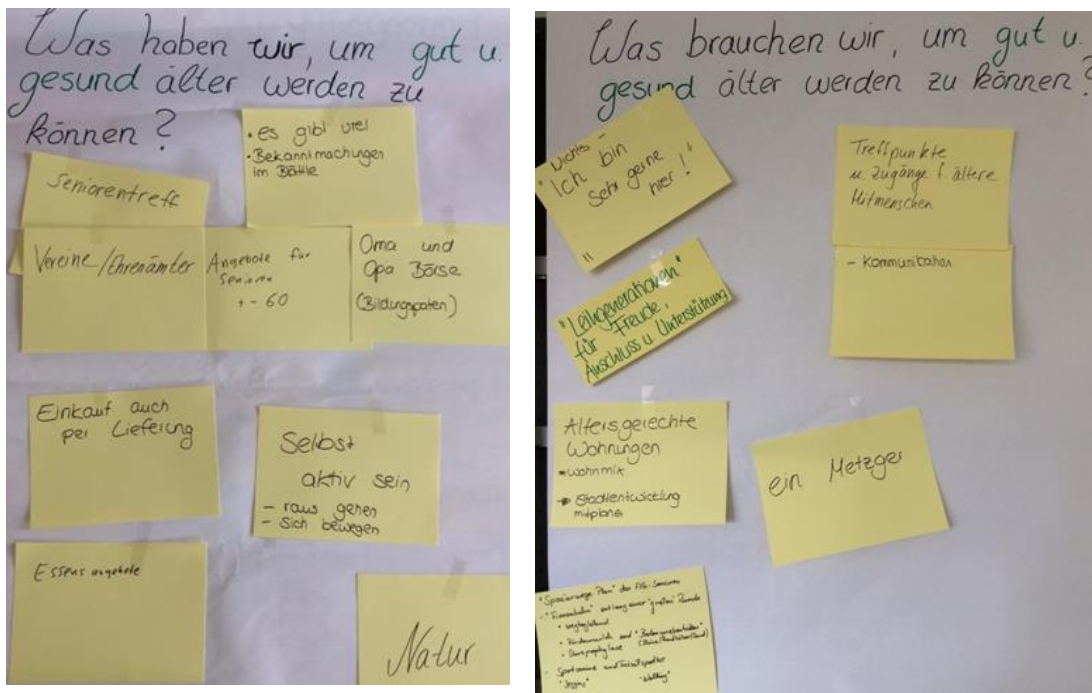 Was haben wir, um gut u.
gesund älter werden zu
können?
• es gibt viel
• Bekanntmachungen
im Blättle
Seniorentreff
Vereine/Ehrenämter
Angebote für
Senioren
+ - 60
Oma und
Opa Börse
(Bildungspaten)
Einkauf auch
per Lieferung
Selbst
aktiv sein
- raus gehen
- Sich bewegen
Essensangebote
Natur
Was brauchen wir, um gut u.
gesund älter werden zu können?
"Nichts -
Ich bin
sehr gerne
hier!"
Treffpunkte
u Zugänge f ältere
Mitmenschen
- Kommunikation
"Leihgenerationen"
für Freude,
Anschluss u Unterstützung
Altersgerechte
Wohnungen
Wohnmix
Stadtentwicklung
mitplanen
ein Metzger
"Spazierwege Plan" der Senioren
entlang einer "großen" Runde
• Sturzprophylaxe
"Walking"